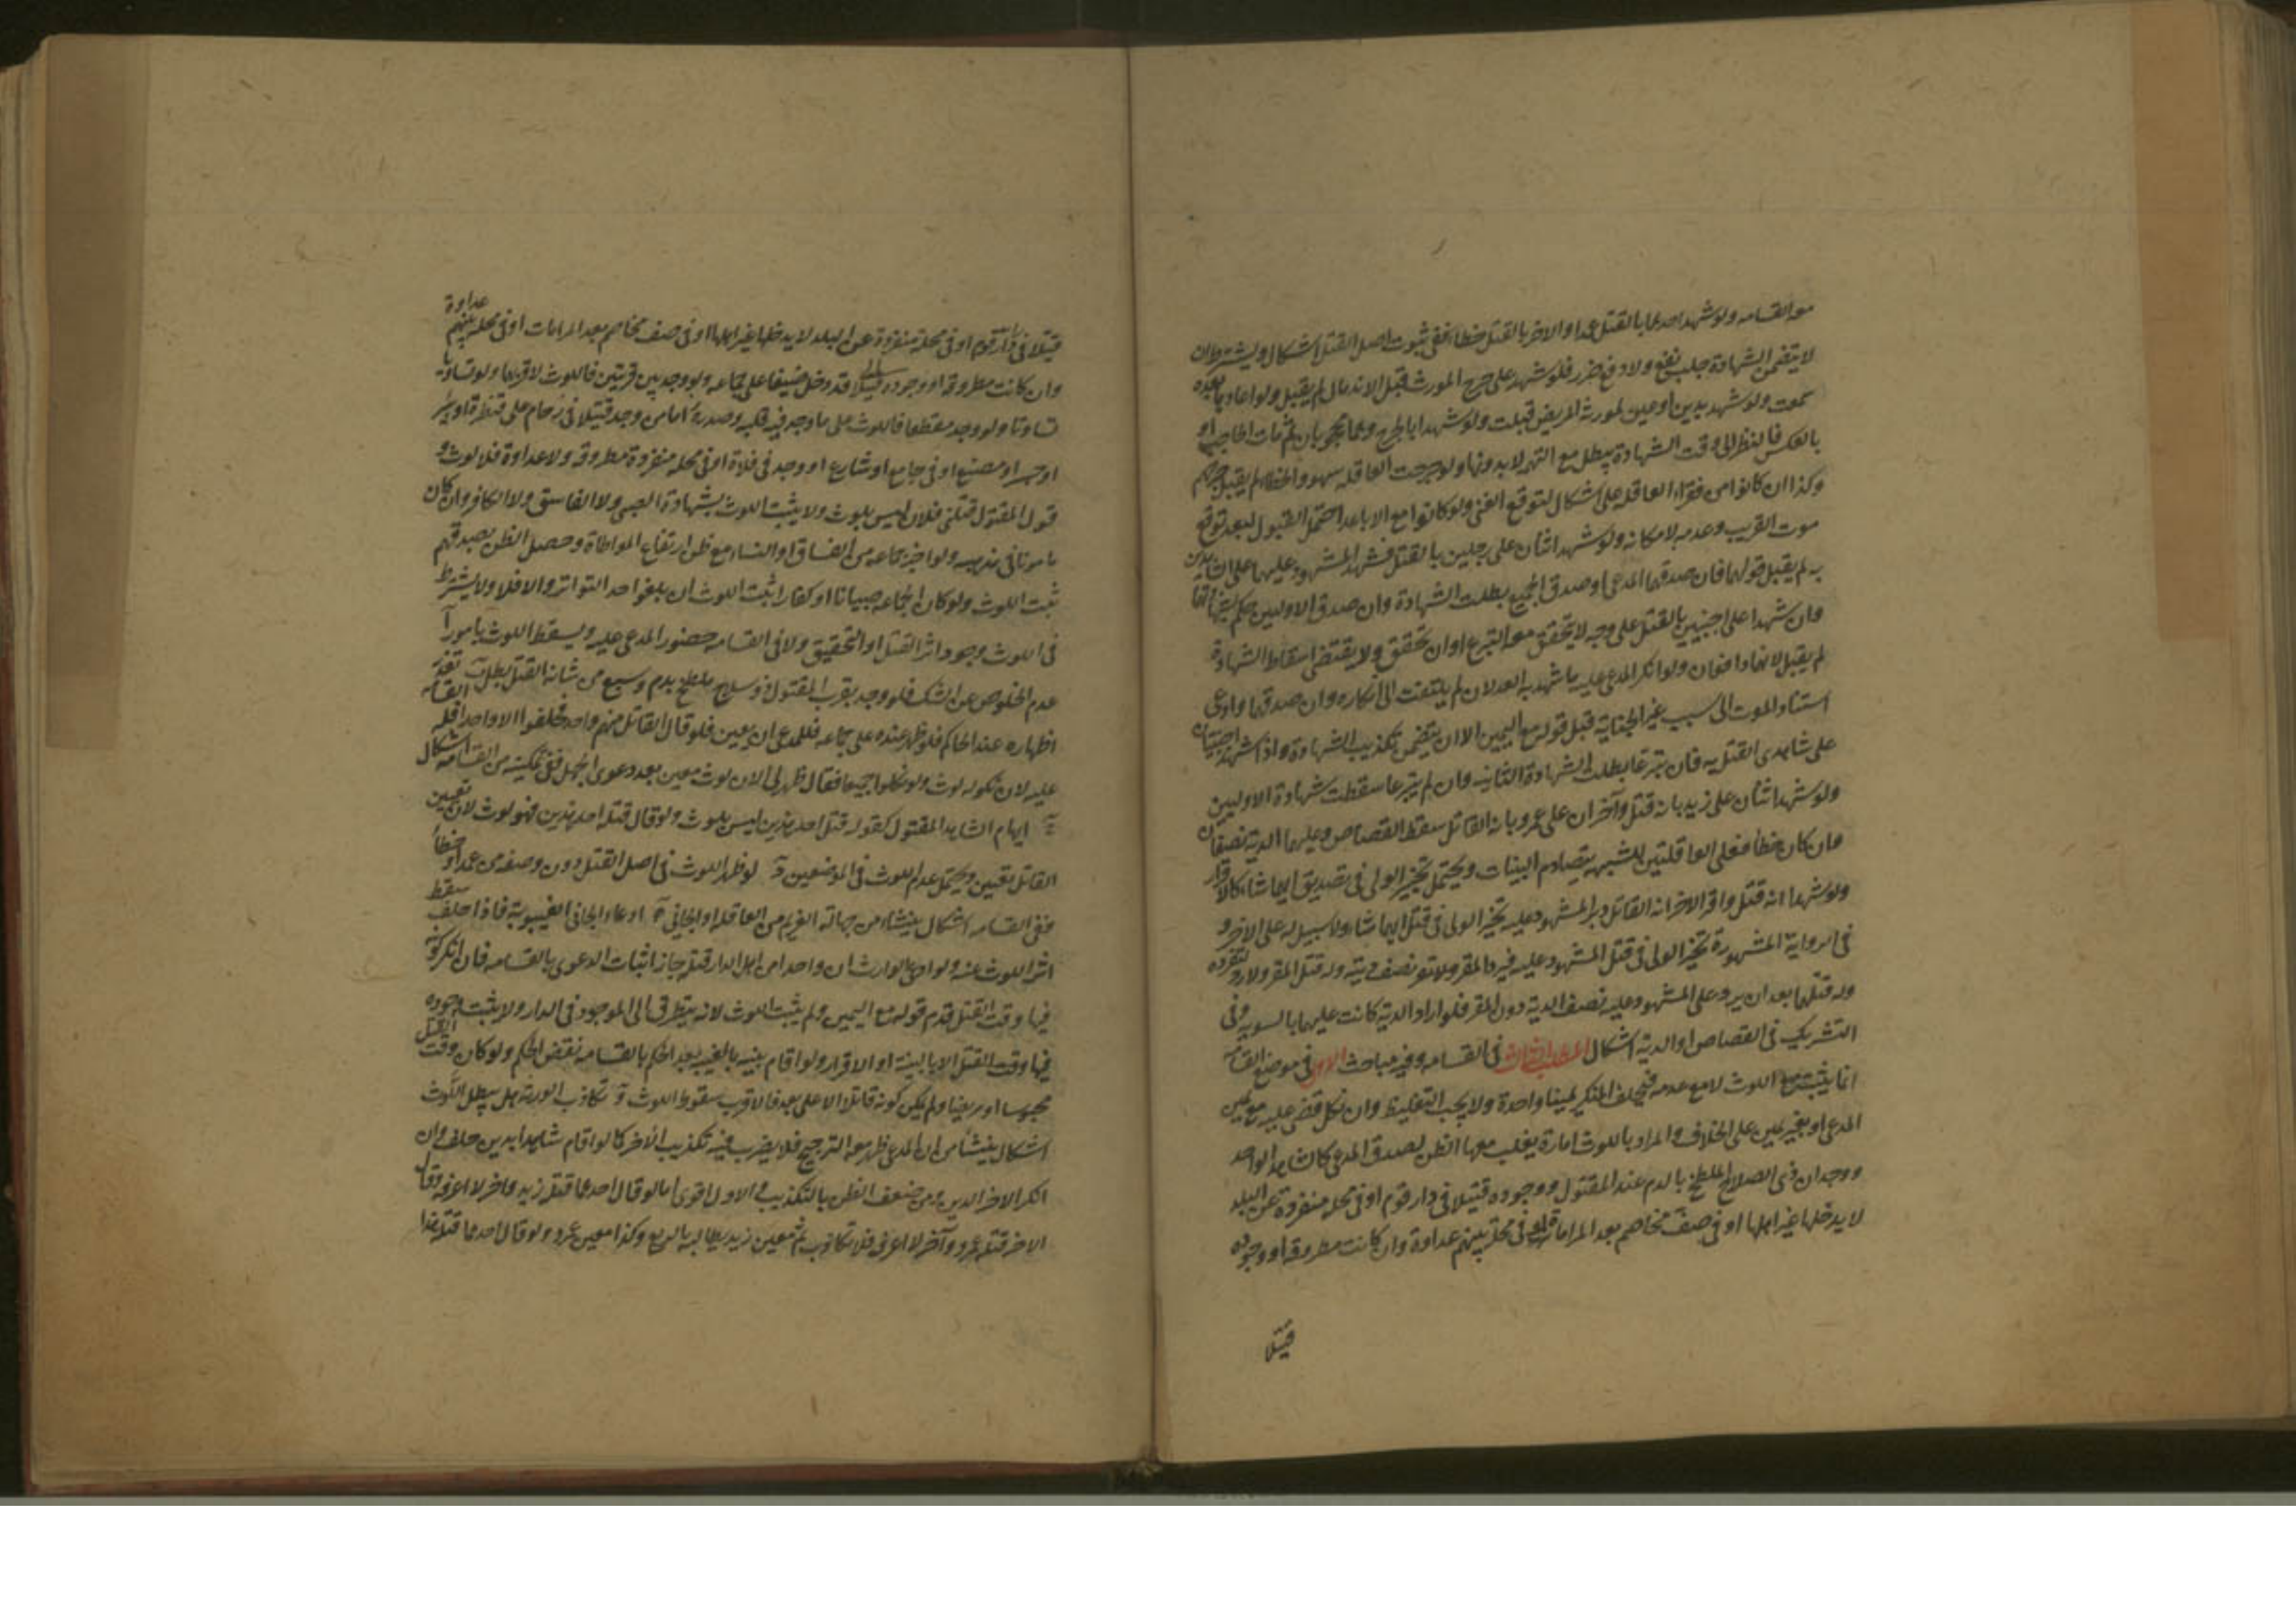 معه القسامه ولو شهد احدهما بالقتل عمدا والاخر بالقتل خطا ففى ثبوت اصل القتل اشكال ويشترط ان
لا يتضمن الشهادة جلب نفع ولا دفع ضرر فلو شهد على جرح المورث قبل الاندمال لم يقبل ولو اعادها بعده
سمعت ولو شهد بدين او عين لمورثه المريض قبلت ولو شهدا بالجرح وهما محجوبان ثم مات الحاجب او
بالعكس فالنظر الى وقت الشهادة يبطل مع التهمه لا بدونها ولو جرحت العاقله سهود الخطا لم يقبل جرحهم
وكذا ان كانوا من فقراء العاقله على اشكال لتوقع الغنى ولو كانوا مع الاباعد احتمل القبول لبعد توقع
موت القريب وعدمه لامكانه ولو شهد اثنان على رجلين بالقتل فشهد المشهود عليهما على الشاهدين
به لم يقبل قولهما فان صدقهما المدعى او صدق الجميع بطلت الشهادة وان صدق الاولين حكم بشهادتهما
وان شهدا على اجنبيين بالقتل على وجه لا يتحقق معه التبرع او ان تحقق ولا يقتضى اسقاط الشهادة
لم يقبل لانهما دافعان ولو انكر المدعى عليه ما شهد به العدلان لم يلتفت الى انكاره وان صدقهما وادعى
استناد الموت الى سبب غير الجناية قبل قوله مع اليمين الا ان يتضمن تكذيب الشهادة واذا شهد اجنبيان
على شاهدى القتل به فان تبرعا بطلت الشهادة الثانيه وان لم يتبرعا سقطت شهادة الاوليين
ولو شهد اثنان على زيد بانه قتل وآخران على عمرو بانه القاتل سقط القصاص وعليهما الدية نصفان
وان كان خطا فعلى العاقلتين للشبهه بتصادم البينات ويحتمل تخير الولى فى تصديق ايهما شاء كالاقرار
ولو شهدا انه قتل واقر الاخر انه القاتل وبرا المشهود عليه تخير الولى فى قتل ايهما شاء ولا سبيل له على الاخر و
فى الرواية المشهورة تخير الولى فى قتل المشهود عليه فيرد المقر ولاته نصف ديته وله قتل المقر ولا رد لتفرده
وله قتلهما بعد ان يرد على المشهود عليه نصف الدية دون المقر فلو اراد الدية كانت عليهما بالسويه وفى
التشريك فى القصاص او الدية اشكال المطلب الثالث فى القسامه وفيه مباحث الاول فى موضع القسامه
انما يثبت مع اللوث لا مع عدمه فيحلف المنكر يمينا واحدة ولا يجب التغليظ وان نكل قضى عليه مع يمين
المدعى او بغير يمين على الخلاف والمراد باللوث امارة يغلب معها الظن بصدق المدعى كالشاهد الواحد
ووجدان ذى السلاح الملطخ بالدم عند المقتول ووجوده قتيلا فى دار قوم او فى محله منفردة عن البلد
لا يدخلها غير اهلها او فى صف مخاصم بعد المراماة او فى محلة بينهم عداوة وان كانت مطروقه او وجوده
قتيلا
قتيلا فى دار قوم او فى محلة منفردة عن البلد لا يدخلها غير اهلها او فى صف مخاصم بعد المرامات او فى محله بينهم عداوة
وان كانت مطروقه او وجوده قتيلا قد دخل ضيفا على جماعه ولو وجد بين قريتين فاللوث لاقربهما ولو تساوتا
تساوتا ولو وجد مقطعا فاللوث على ما وجد فيه قلبه وصدره اما من وجد قتيلا فى زحام على قنطرة او بئر
او جسر او مصنع او فى جامع او شارع او وجد فى فلاة او فى محله منفردة مطروقه ولا عداوة فلا لوث و
قول المقتول قتلنى فلان ليس بلوث ولا يثبت اللوث بشهادة الصبى ولا الفاسق ولا الكافر وان كان
مامونا فى مذهبه ولو اخبر جماعه من الفساق او النساء مع ظن ارتفاع المواطاة وحصل الظن بصدقهم
ثبت اللوث ولو كان الجماعه صبيانا او كفارا ثبت اللوث ان بلغوا حد التواتر والا فلا ولا يشترط
فى اللوث وجود اثر القتل او التحقيق ولا فى القسامه حضور المدعى عليه ويسقط اللوث بامور آ
عدم الخلوص عن الشك فلو وجد بقرب المقتول ذو سلاح ملطخ بدم وسبع من شانه القتل بطل ب تعذر
اظهاره عند الحاكم فلو ظهر عنده على جماعه فللمدعى ان يعين فلو قال القاتل منهم واحد فحلفوا الا واحدا فله القسامه
عليه لان نكوله لوث ولو نكلوا جميعا فقال ظهر لى الان لوث معين بعد دعوى الجهل ففى تمكينه من القسامه اشكال
ج ابهام الشاهد المقتول كقوله قتل احد هذين ليس بلوث ولو قال قتله احد هذين فهو لوث لان تعيين
القاتل تعيين ويحتمل عدم اللوث فى الموضعين د لو ظهر اللوث فى اصل القتل دون وصفه من عمد او خطا
ففى القسامه اشكال ينشاء من جهالة الغريم من العاقله او الجانى ه ادعاء الجانى الغيبوبة فاذا حلف سقط
اثر اللوث عنه ولو ادعى الوارث ان واحدا من اهل الدار قتله جاز اثبات الدعوى بالقسامه فان انكر كونه
فيها وقت القتل قدم قوله مع اليمين ولم يثبت اللوث لانه يتطرق الى الموجود فى الدار ولا يثبت وجوده
فيها وقت القتل الا بالبينة او الاقرار ولو اقام بينه بالغيبه بعد الحكم بالقسامه نقض الحكم ولو كان وقت القتل
محبوسا او مريضا ولم يكن كونه قاتلا الا على بعد فالاقرب سقوط اللوث و تكاذب الورثة هل يبطل اللوث
اشكال ينشأ من ان المدعى ظهر معه الترجيح فلا يضر فيه تكذيب الاخر كما لو اقام شاهدا بدين حلف وان
انكر الاخر الدين ومن ضعف الظن بالتكذيب والاول اقوى اما لو قال احدهما قتله زيد واخر لا اعرفه وقال
الاخر قتله عمرو وآخر لا اعرفه فلا تكاذب ثم معين زيد يطالبه بالربع وكذا معين عمرو ولو قال احدهما قتله هذا